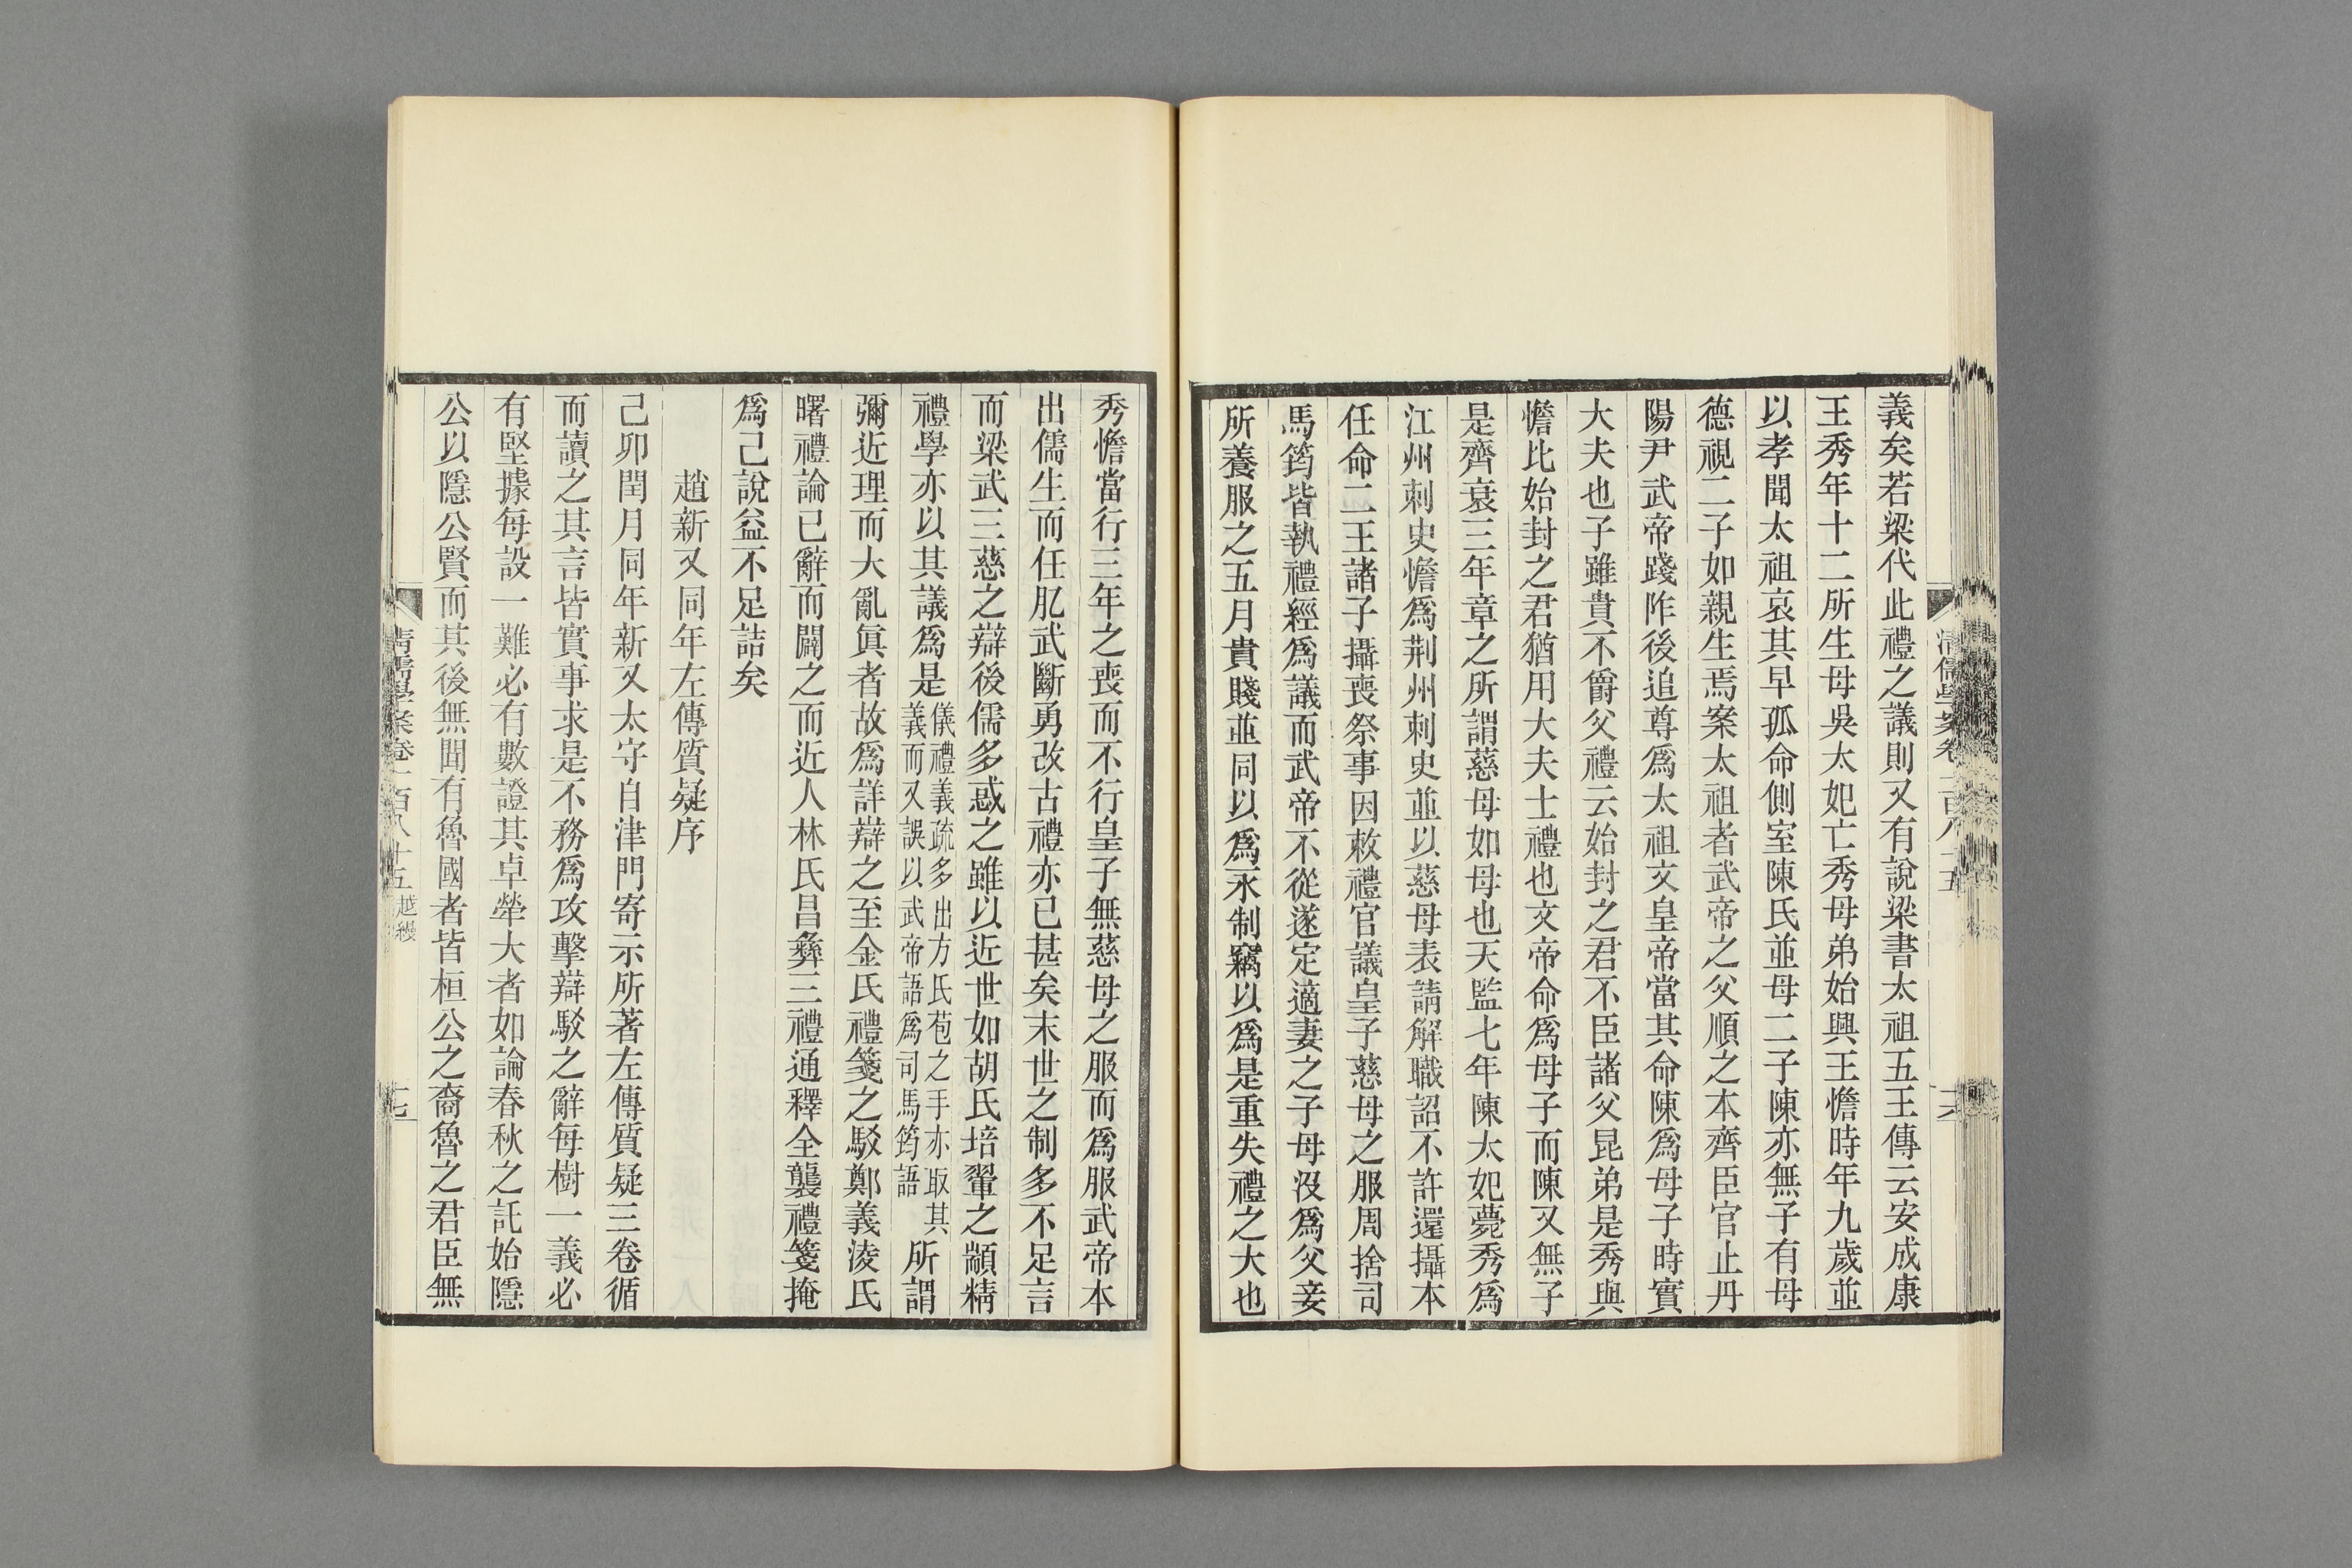 義矣若梁代此禮之議則又有說梁書太祖五王傳云安成康
王秀年十二所生母吳太妃亡秀母弟始興王憺時年九歲並
以孝聞太祖哀其早孤命側室陳氏並母二子陳亦無子有母
德視二子如親生焉案太祖者武帝之父順之本齊臣官止丹
陽尹武帝踐阼後追尊爲太祖文皇帝當其命陳爲母子時實
大夫也子雖貴不爵父禮云始封之君不臣諸父昆弟是秀與
憺比始封之君猶用大夫士禮也文帝命爲母子而陳又無子
是齊衰三年章之所謂慈母如母也天監七年陳太妃薨秀爲
江州刺史憺爲荆州刺史並以慈母表請解職詔不許還攝本
任命二王諸子攝喪祭事因敕禮官議皇子慈母之服周捨司
馬筠皆執禮經爲議而武帝不從遂定適妻之子母沒爲父妾
所養服之五月貴賤並同以爲永制竊以爲是重失禮之大也
秀憺當行三年之喪而不行皇子無慈母之服而爲服武帝本
出儒生而任肊武斷勇改古禮亦已甚矣末世之制多不足言
而梁武三慈之辯後儒多惑之雖以近世如胡氏培翬之顓精
禮學亦以其議爲是儀禮義疏多出方氏苞之手亦取其義而又誤以武帝語爲司馬筠語所謂
彌近理而大亂眞者故爲詳辯之至金氏禮箋之駁鄭義淩氏
曙禮論已辭而闢之而近人林氏昌彝三禮通釋全襲禮箋掩
爲己說益不足詰矣
趙新又同年左傳質疑序
己卯閏月同年新又太守自津門寄示所著左傳質疑三卷循
而讀之其言皆實事求是不務爲攻擊辯駁之辭每樹一義必
有堅據每設一難必有數證其卓犖大者如論春秋之託始隱
公以隱公賢而其後無聞有魯國者皆桓公之裔魯之君臣無
清儒學案卷一百八十五 越縵
十七